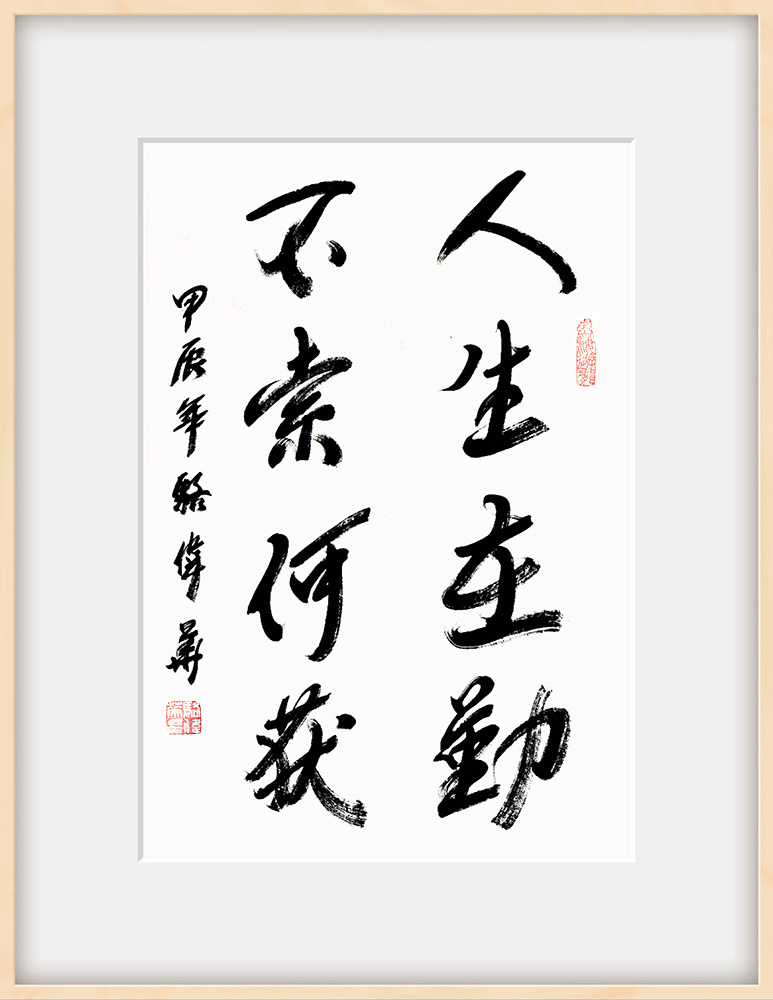 人生在勤
不索何获
甲辰年骆偉華